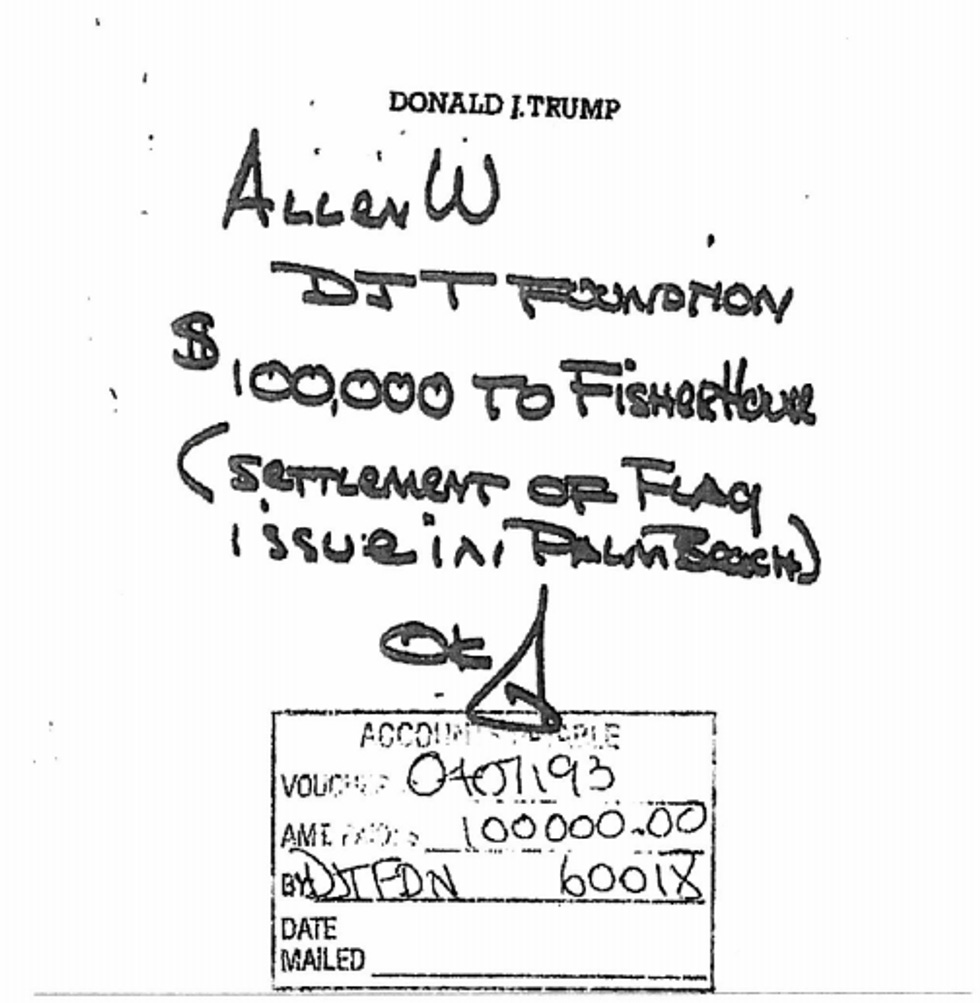 DONALD J. TRUMP
ALLEN W
DJT FOUNDATION
$100,000 TO FISHERHOUSE
(SETTLEMENT OF FLAG
ISSUE IN PALM BEACH)
OK
ACCOUNTS PAYABLE
VOUCHER
AMT 100000.00
BY DJT FDN 60018
DATE
MAILED